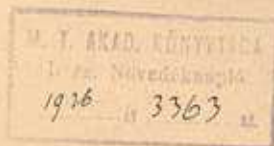 M. T. AKAD. KÖNYVTÁRA
I. sz. Növedéknapló
1936 év 3363 sz.